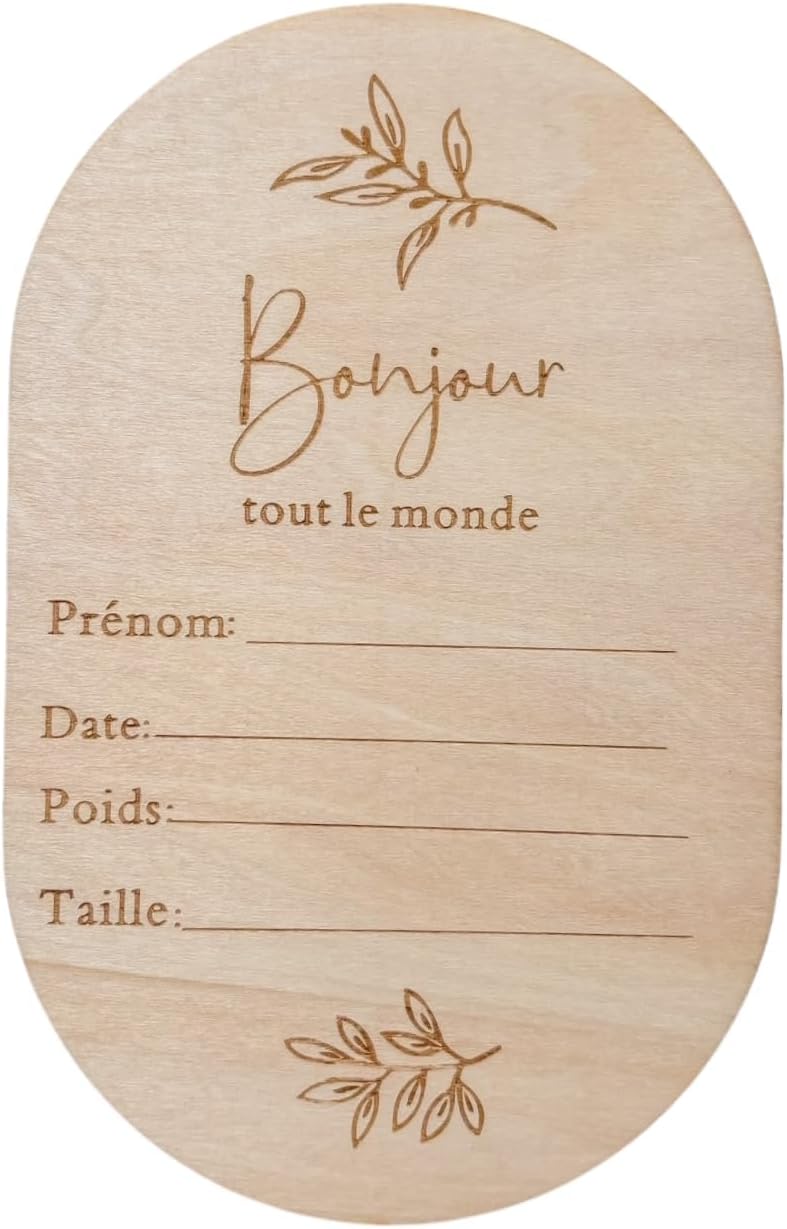 Bonjour
tout le monde
Prénom:
Date:
Poids:
Taille: